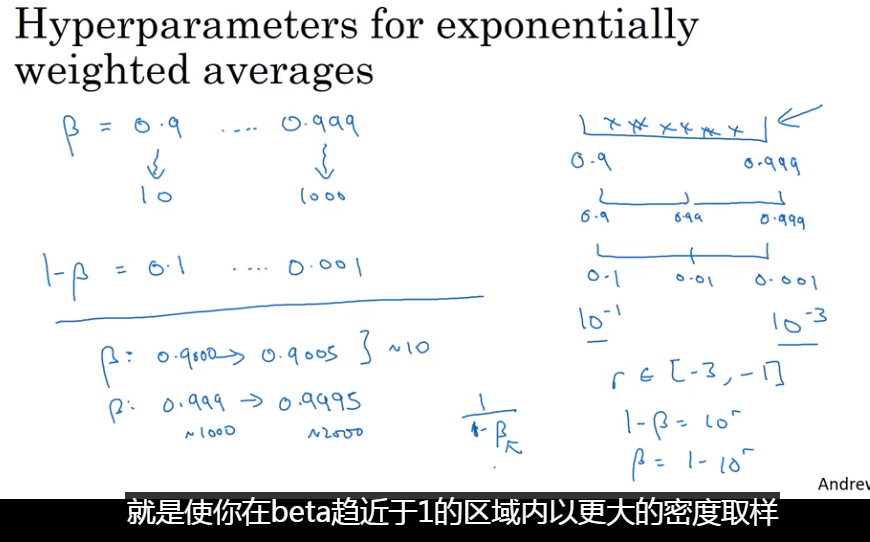 Hyperparameters for exponentially
weighted averages
β = 0.9 .... 0.999
10 1000
1-β = 0.1 .... 0.001
β: 0.9000 → 0.9005 } ~10
β: 0.999 → 0.9995
~1000 ~2000
1
1-β
0.9 0.999
0.9 0.99 0.999
0.1 0.01 0.001
10⁻¹ 10⁻³
r ∈ [-3, -1]
1-β = 10ʳ
β = 1-10ʳ
Andrew
就是使你在beta趋近于1的区域内以更大的密度取样